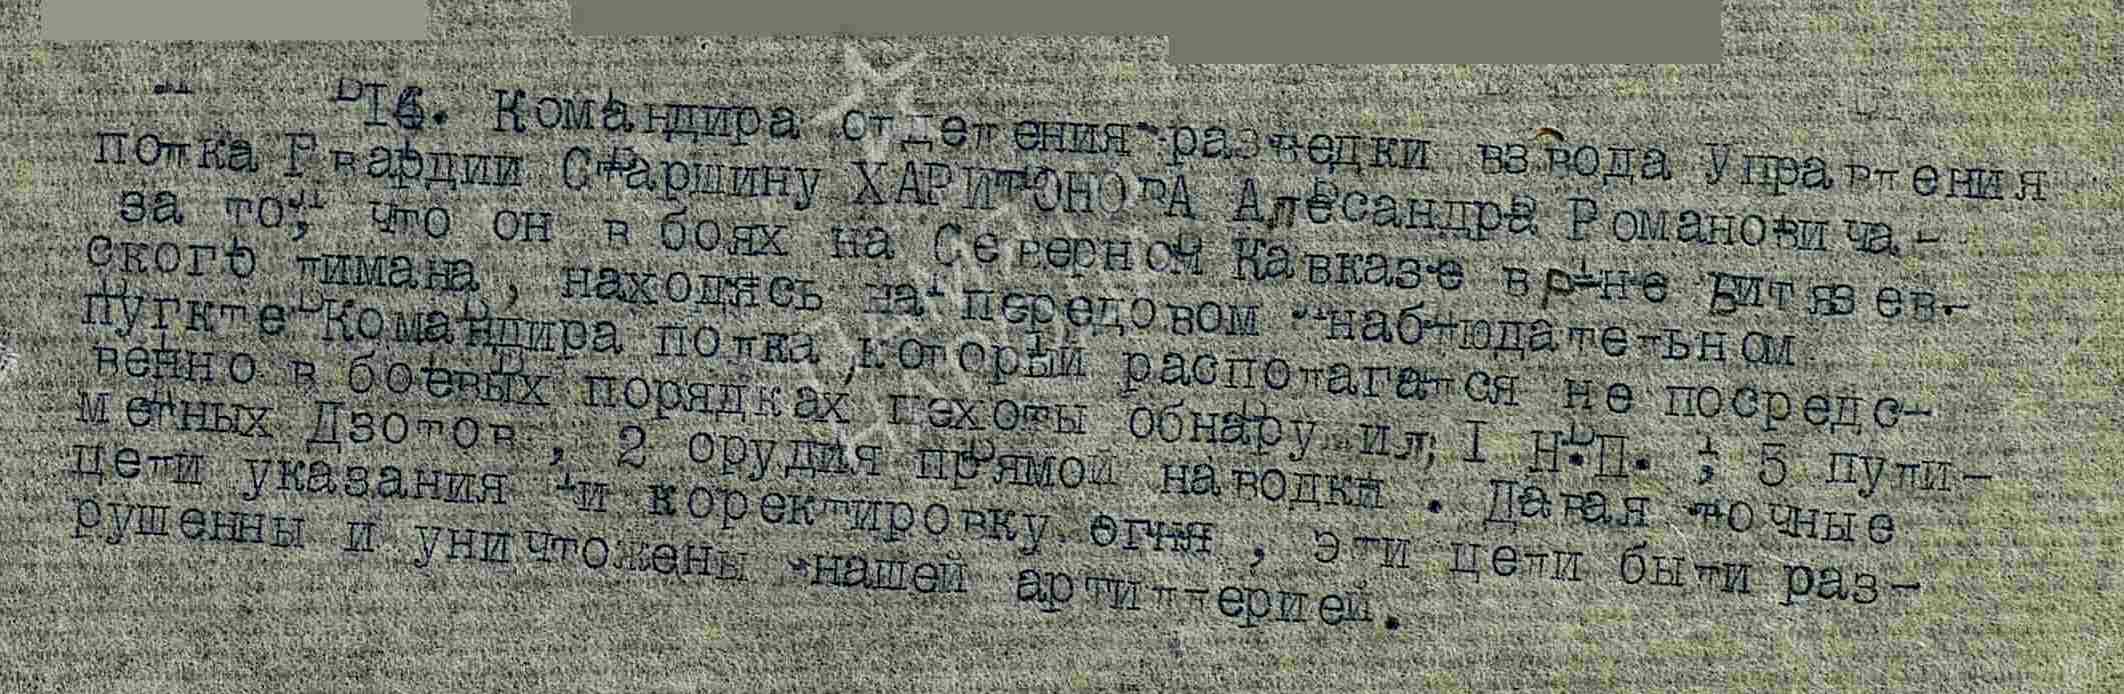 16. Командира отделения разведки взвода Управления
полка Гвардии Старшину ХАРИТОНОВА Алесандра Романовича-
за то, что он в боях на Северном Кавказе в р-не Витязев-
ского лимана, находясь на передовом наблюдательном
пункте Командира полка, который располагался не посредс-
венно в боевых порядках пехоты обнаружил; I Н.П. ; 5 пули-
метных Дзотов, 2 орудия прямой наводки. Давая точные
цели указания и коректировку огня, эти цели были раз-
рушенны и уничтожены нашей артиллерией.
ПАМЯТЬ
НАРОДА